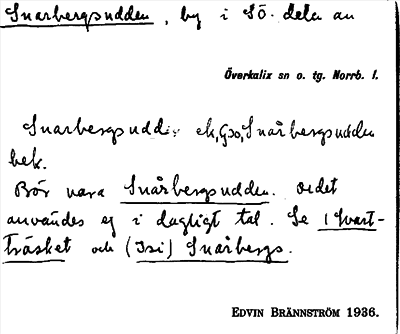 Snarbergsudden, by i SÖ. delen av
Överkalix sn o. tg. Norrb. l.
Snarbergsudd: ek, Gso, Snårbergsudden
bek.
Bör vara Snårbergsudden. Ordet
användes ej i dagligt tal. Se 1 Svart-
träsket och (Isi) Snårbergs.
EDVIN BRÄNNSTRÖM 1936.